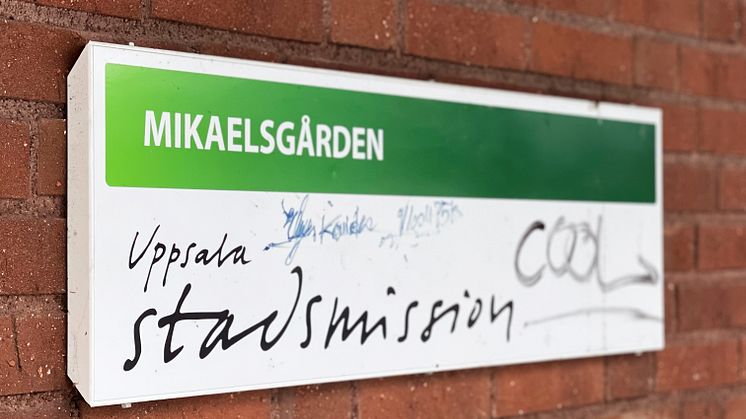 MIKAELSGÅRDEN
Uppsala
stadsmission
COOL